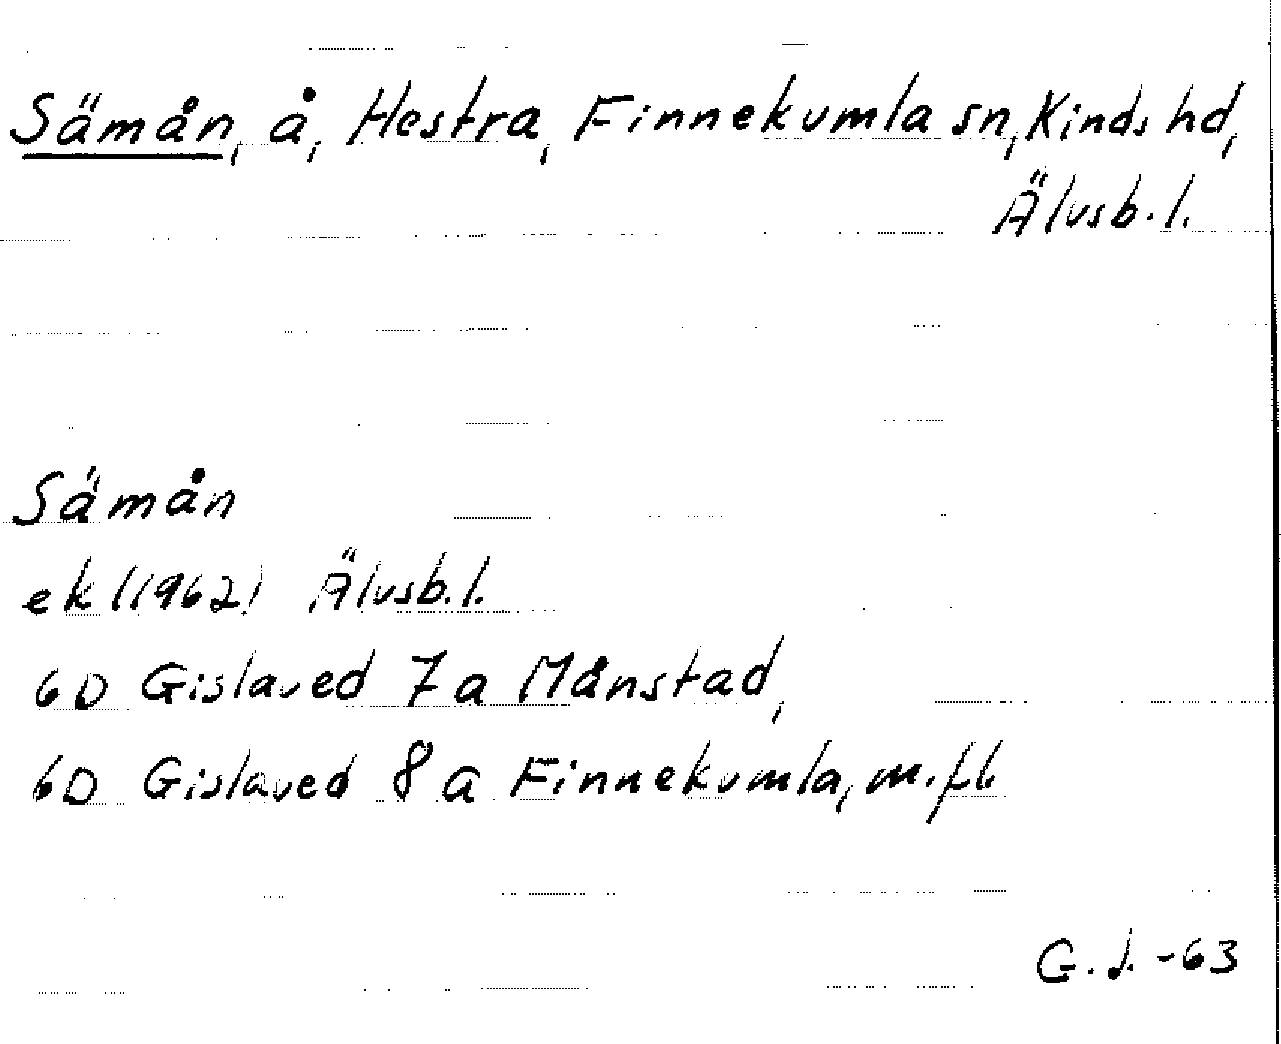 Sämån, å, Hestra, Finnekumla sn, Kinds hd,
Älvsb. l.
Sämån
ek (1962) Älvsb. l.
6D Gislaved 7a Månstad,
6D Gislaved 8a Finnekumla, m. fl.
G. J. -63